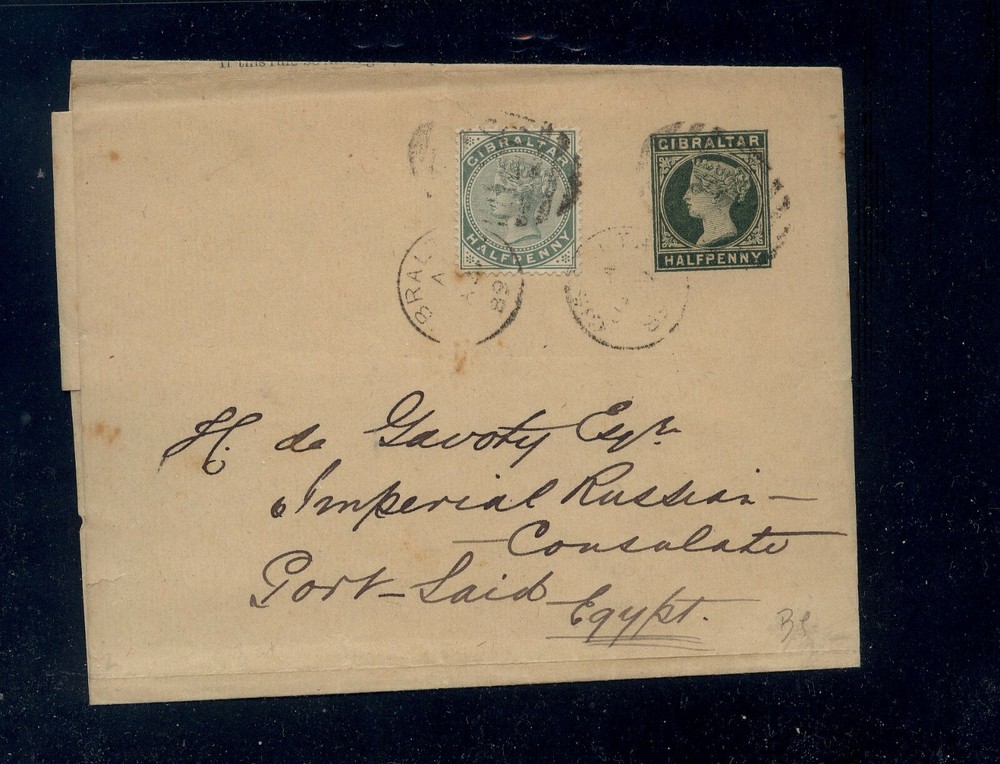 If this rule be
GIBRALTAR
HALFPENNY
GIBRALTAR
HALFPENNY
A
89
A
H. de Gavoty Esqr.
Imperial Russian
Consulate
Port-Said
Egypt.